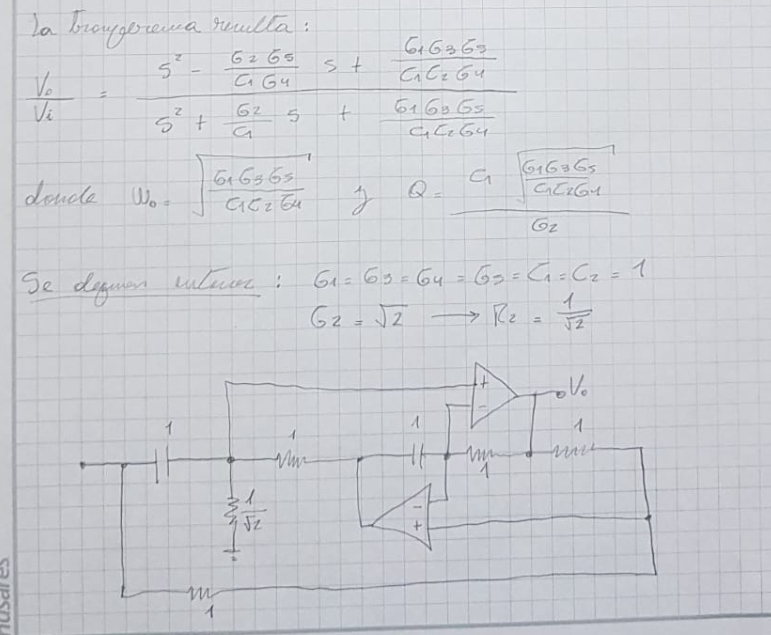 La transferencia resulta:
Vo/Vi = (s² - (G2 G5)/(C1 G4) s + (G1 G3 G5)/(C1 C2 G4)) / (s² + (G2/C1) s + (G1 G3 G5)/(C1 C2 G4))
donde ω0 = √((G1 G3 G5)/(C1 C2 G4)) y Q = (C1 √((G1 G3 G5)/(C1 C2 G4))) / G2
Se definen entonces: G1 = G3 = G4 = G5 = C1 = C2 = 1
G2 = √2 → R2 = 1/√2
+ Vo
-
1 1 1 1
1
1/√2
-
+
1